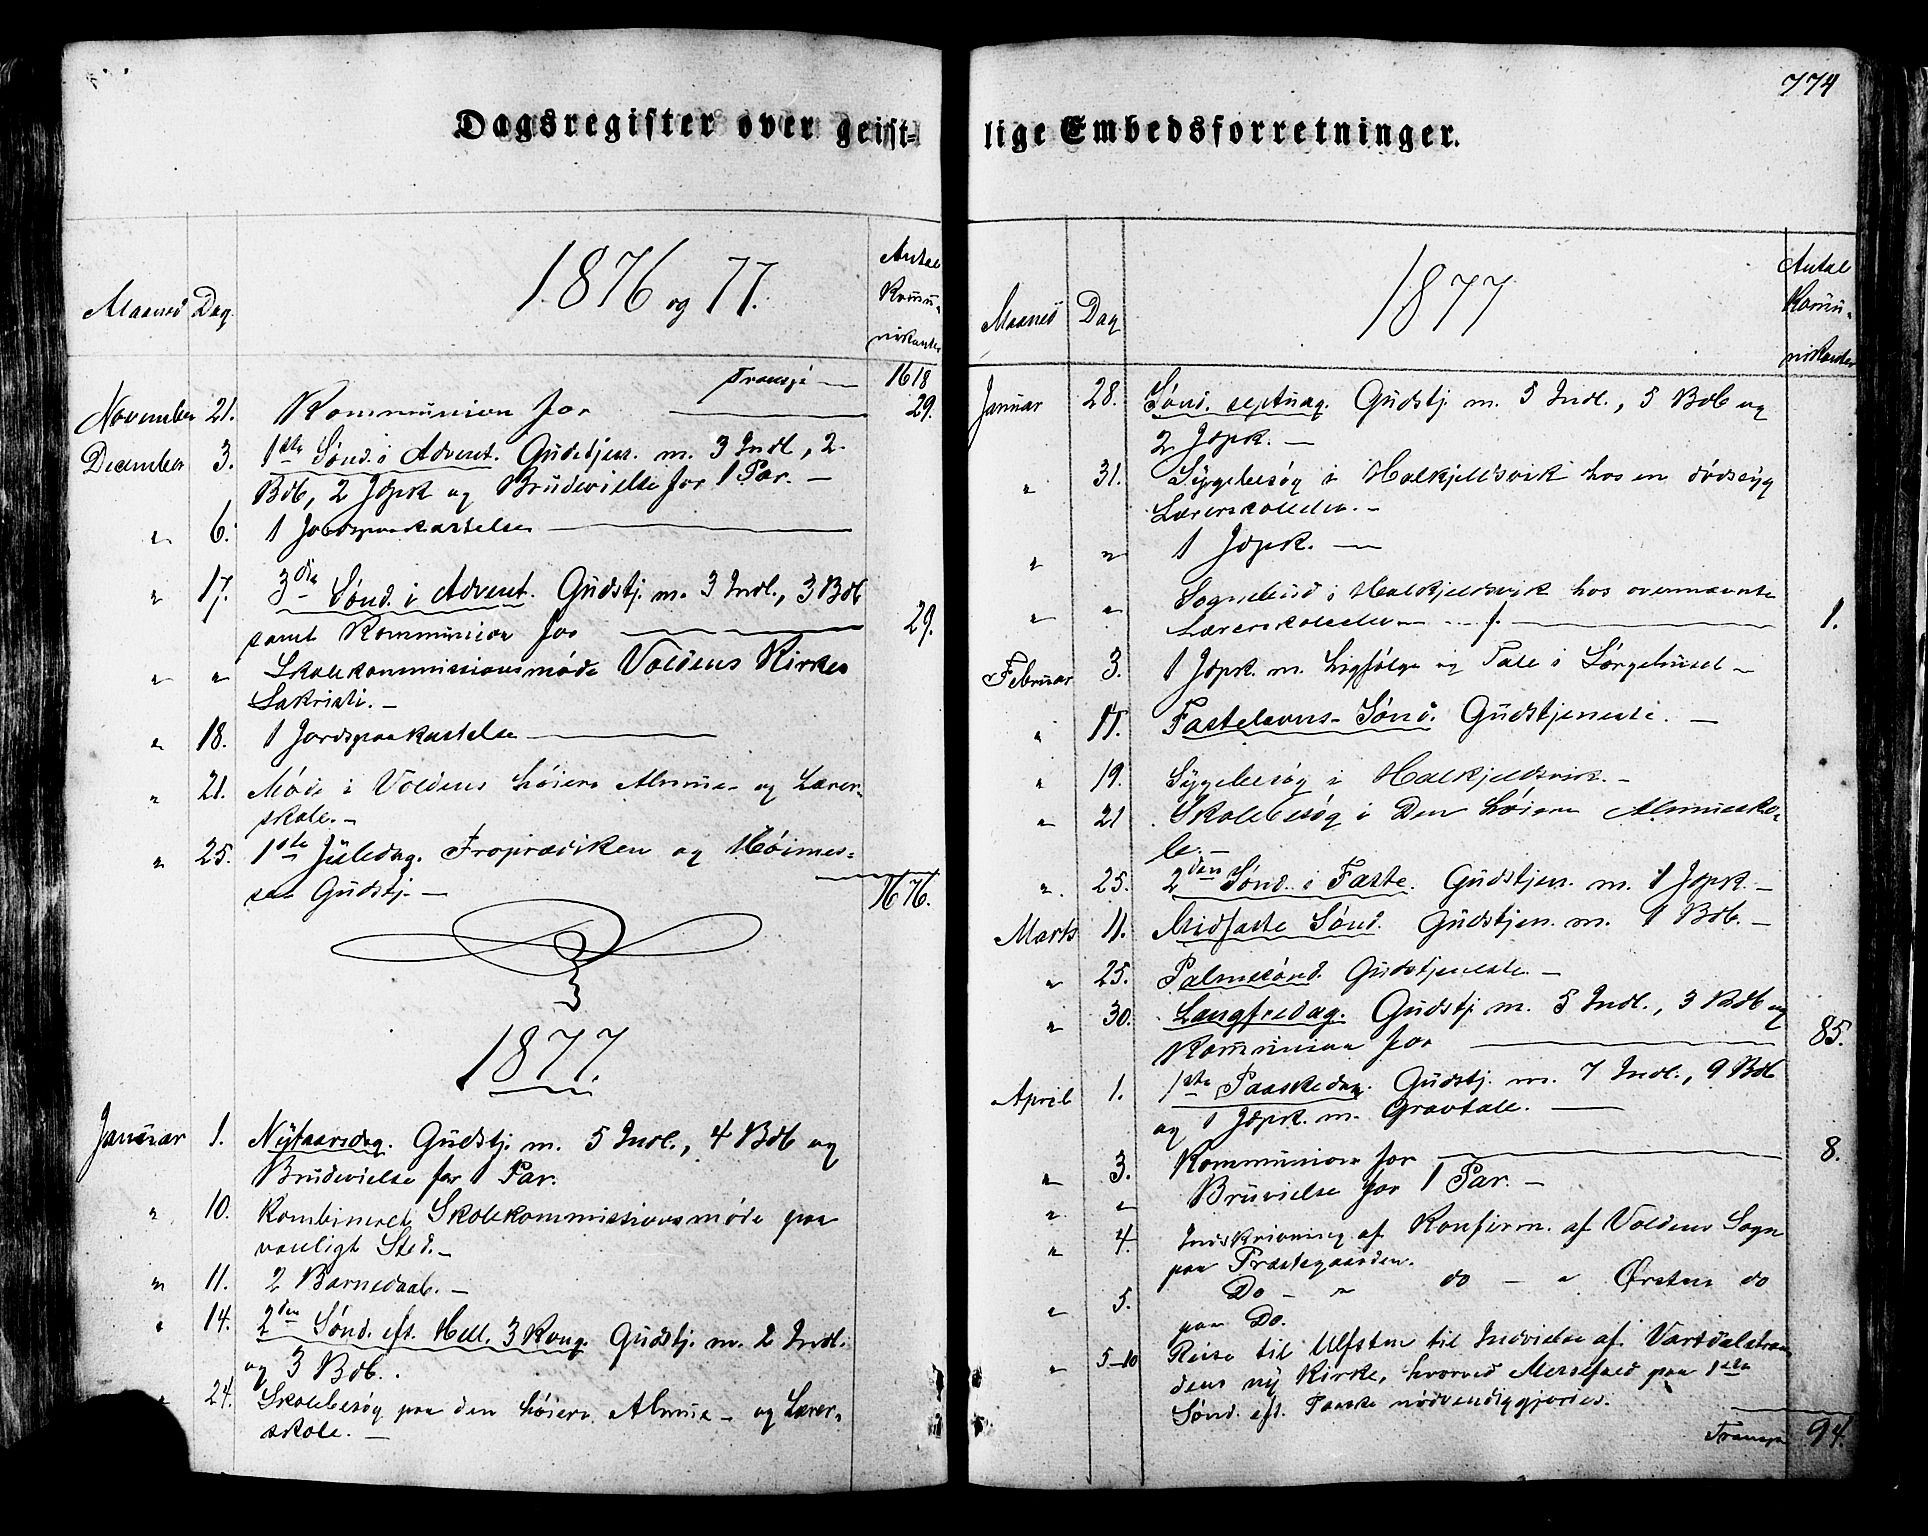 774
Dagsregister over geist-
lige Embedsforretninger.
1876 og 77.
Maaned Dag
Antal
Kommu-
nikanter
Transp. 1618
November 21. Kommunion for 29.
December 3. 1ste Sønd. i Advent. Gudstjen. m. 3 Indl., 2.
Bdb, 2 Jdpk og Brudevielse for 1 Par. -
" 6. 1 Jordspaakastelse
" 17. 3die Sønd. i Advent. Gudstj. m. 3 Indl., 3 Bdb
samt Kommunion for 29.
" " Skolekommissionsmøde Voldens Kirkes
Sakristi. -
" 18. 1 Jordspaakastelse
" 21. Møde i Voldens høiere Almue- og Lærer-
skole. -
" 25. 1ste Juledag. Froprædiken og Høimes-
se Gudstj. - 1676.
1877.
Januar 1. Nytaarsdag. Gudstj. m. 5 Indl., 4 Bdb og
Brudevielse for 1 Par.
" 10. Kombineret Skolekommissionsmøde paa
vanligt Sted. -
" 11. 2 Barnedaab. -
" 14. 2den Sønd. eft. Hell. 3 Kong. Gudstj. m. 2 Indl.
og 3 Bdb.
" 24. Skolebesøg paa den høiere Almue- og Lærer-
skole. -
1877
Maaned Dag
Antal
Kommu-
nikanter
Januar 28. Sønd. septuag. Gudstj. m. 5 Indl., 5 Bdb og
2 Jdpk. -
" 31. Sygebesøg i Halkjeldsvik hos en dødssyg
Lærerskoleelev. -
" " 1 Jdpk. -
" " Sognebud i Halkjeldsvik hos ovennævnte
Lærerskoleelev 1.
Februar 3. 1 Jdpk. m. Ligfølge og Tale i Sørgehuset -
" 11. Fastelavns-Sønd. Gudstjeneste. -
" 19. Sygebesøg i Halkjeldsvik. -
" 21 Skolebesøg i Den høiere Almuesko-
le. -
" 25. 2den Sønd. i Faste. Gudstjen. m. 1 Jdpk. -
Marts 11. Midfaste Sønd. Gudstjen. m. 1 Bdb. -
" 25. Palmesønd. Gudstjeneste. -
" 30. Langfredag. Gudstj m. 5 Indl., 3 Bdb og
Kommunion for 85.
April 1. 1ste Paaskedag. Gudstj. m. 7 Indl., 9 Bdb
og 1 Jdpk. m. Gravtale.
" 3. Kommunion for 8.
" " Bruvielse for 1 Par. -
" 4. Indskrivning af Konfirm. af Voldens Sogn
paa Præstegaarden.
" 5. Do - " do - " Ørsten do
paa Do.
" 5-10 Reise til Ulfsten til Indvielse af Vartdalstran
dens ny Kirke, hvorved Messefald paa 1ste
Sønd. eft. Paaske nødvendiggjordes.
Transp. 94.